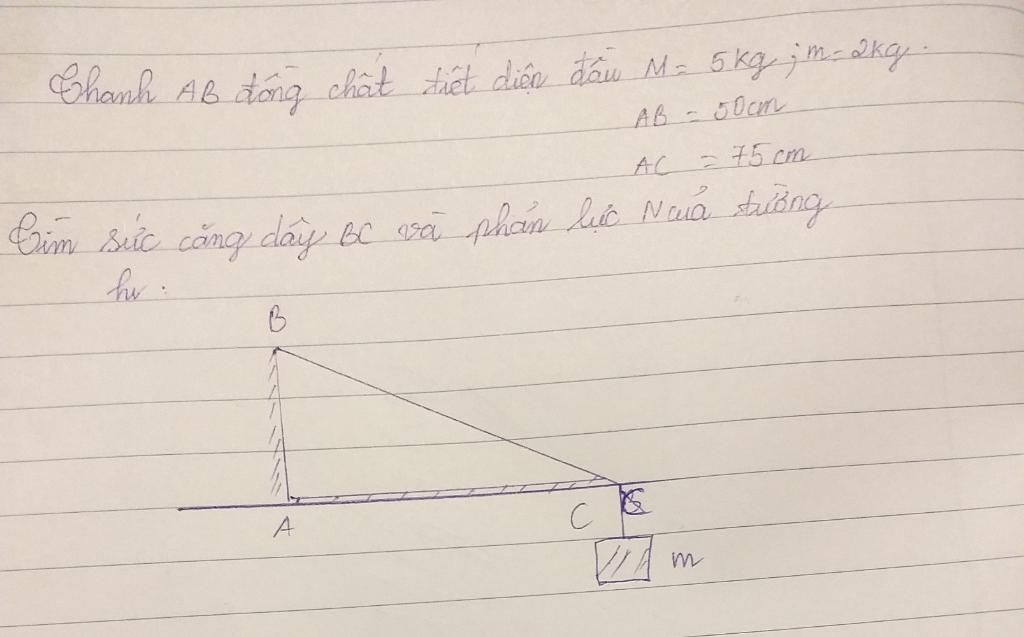 Thanh AB đồng chất tiết diện đều M = 5kg ; m = 2kg.
AB = 50cm
AC = 75cm
Tìm sức căng dây BC và phản lực N của tường
B
A
C
m